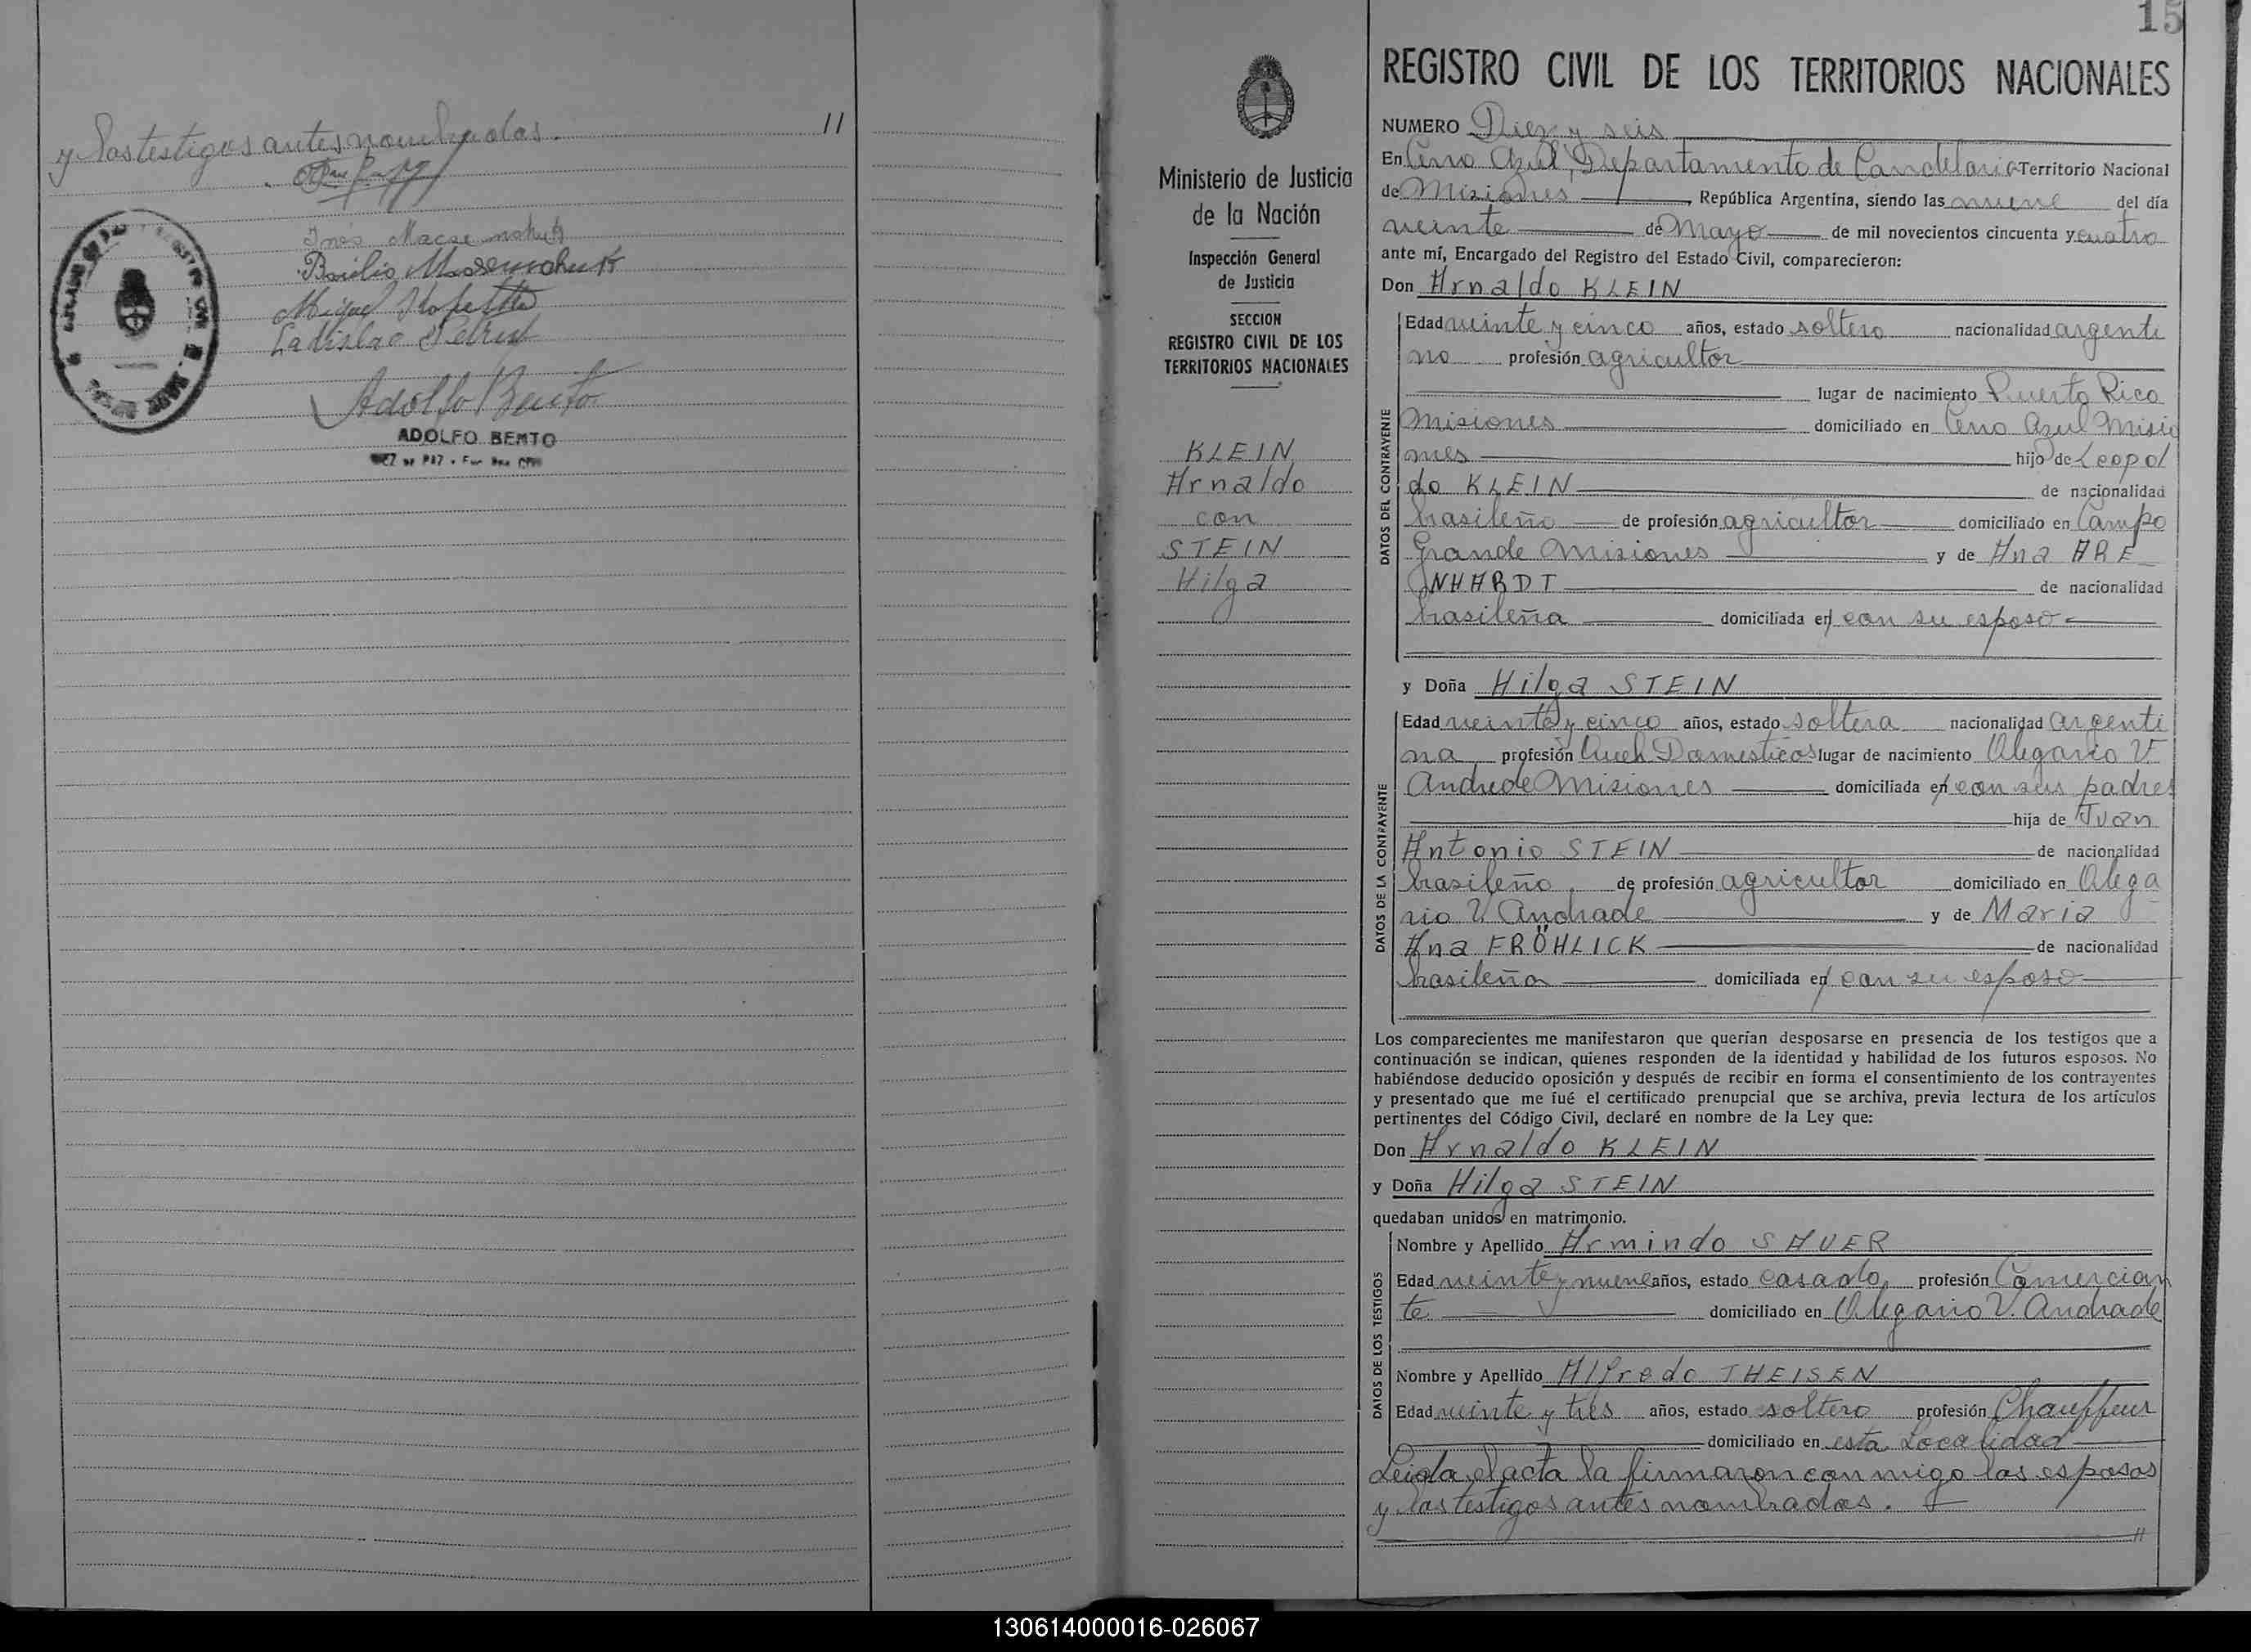 y los testigos antes nombrados. 11
Inés
Basilio
Miguel
Ladislao
Adolfo Bento
ADOLFO BENTO
JUEZ DE PAZ
15
Ministerio de Justicia
de la Nación
Inspección General
de Justicia
SECCION
REGISTRO CIVIL DE LOS
TERRITORIOS NACIONALES
KLEIN
Arnaldo
con
STEIN
Hilga
REGISTRO CIVIL DE LOS TERRITORIOS NACIONALES
NUMERO Diez y seis
En Cerro Azul, Departamento de Candelaria Territorio Nacional
de Misiones, República Argentina, siendo las nueve del día
veinte de Mayo de mil novecientos cincuenta y cuatro
ante mí, Encargado del Registro del Estado Civil, comparecieron:
Don Arnaldo KLEIN
DATOS DEL CONTRAYENTE
Edad veinte y cinco años, estado soltero nacionalidad argenti
no profesión agricultor
lugar de nacimiento Puerto Rico
Misiones domiciliado en Cerro Azul Misio
nes hijo de Leopol
do KLEIN de nacionalidad
brasileño de profesión agricultor domiciliado en Campo
Grande Misiones y de Ana ARE
NHARDT de nacionalidad
brasileña domiciliada en con su esposo
y Doña Hilga STEIN
DATOS DE LA CONTRAYENTE
Edad veinte y cinco años, estado soltera nacionalidad argenti
na profesión Queh Domesticos lugar de nacimiento Olegario V.
Andrade Misiones domiciliada en con sus padres
hija de Juan
Antonio STEIN de nacionalidad
brasileño de profesión agricultor domiciliado en Olega
rio V. Andrade y de Maria
Ana FRÖHLICK de nacionalidad
brasileña domiciliada en con su esposo
Los comparecientes me manifestaron que querían desposarse en presencia de los testigos que a
continuación se indican, quienes responden de la identidad y habilidad de los futuros esposos. No
habiéndose deducido oposición y después de recibir en forma el consentimiento de los contrayentes
y presentado que me fué el certificado prenupcial que se archiva, previa lectura de los artículos
pertinentes del Código Civil, declaré en nombre de la Ley que:
Don Arnaldo KLEIN
y Doña Hilga STEIN
quedaban unidos en matrimonio.
DATOS DE LOS TESTIGOS
Nombre y Apellido Armindo SAUER
Edad veinte y nueve años, estado casado, profesión Comercian
te domiciliado en Olegario V. Andrade
Nombre y Apellido Alfredo THEISEN
Edad veinte y tres años, estado soltero profesión Chauffeur
domiciliado en esta Localidad
Leida el acta la firmaron conmigo los esposos
y los testigos antes nombrados.
130614000016-026067